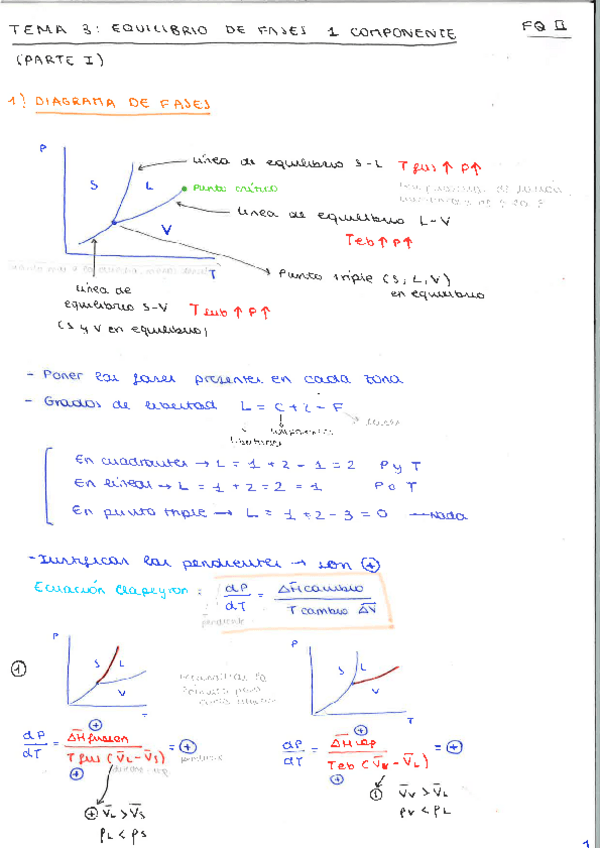 TEMA 3: EQUILIBRIO DE FASES 1 COMPONENTE
FQ II
(PARTE I)
1) DIAGRAMA DE FASES
P
línea de equilibrio S-L Tfus↑ P↑
S
L
Punto crítico
línea de equilibrio L-V
V
Teb↑ P↑
T
Punto triple (S, L, V)
en equilibrio
línea de
equilibrio S-V Tsub↑ P↑
(S y V en equilibrio)
- Poner las fases presentes en cada zona
- Grados de libertad L = C + 2 - F
En cuadrantes → L = 1 + 2 - 1 = 2 P y T
En líneas → L = 1 + 2 = 2 = 1 P o T
En punto triple → L = 1 + 2 - 3 = 0 → Nada
- Justificar las pendientes → son ⊕
Ecuación Clapeyron: dP/dT = ΔH̄cambio / Tcambio ΔV̄
pendiente
①
P
S
L
V
T
P
S
L
V
T
dP/dT = ΔH̄fusion / Tfus (V̄L - V̄S) = ⊕
dP/dT = ΔH̄vap / Teb (V̄V - V̄L) = ⊕
⊕ V̄L > V̄S
ρL < ρS
V̄V > V̄L
ρV < ρL
1